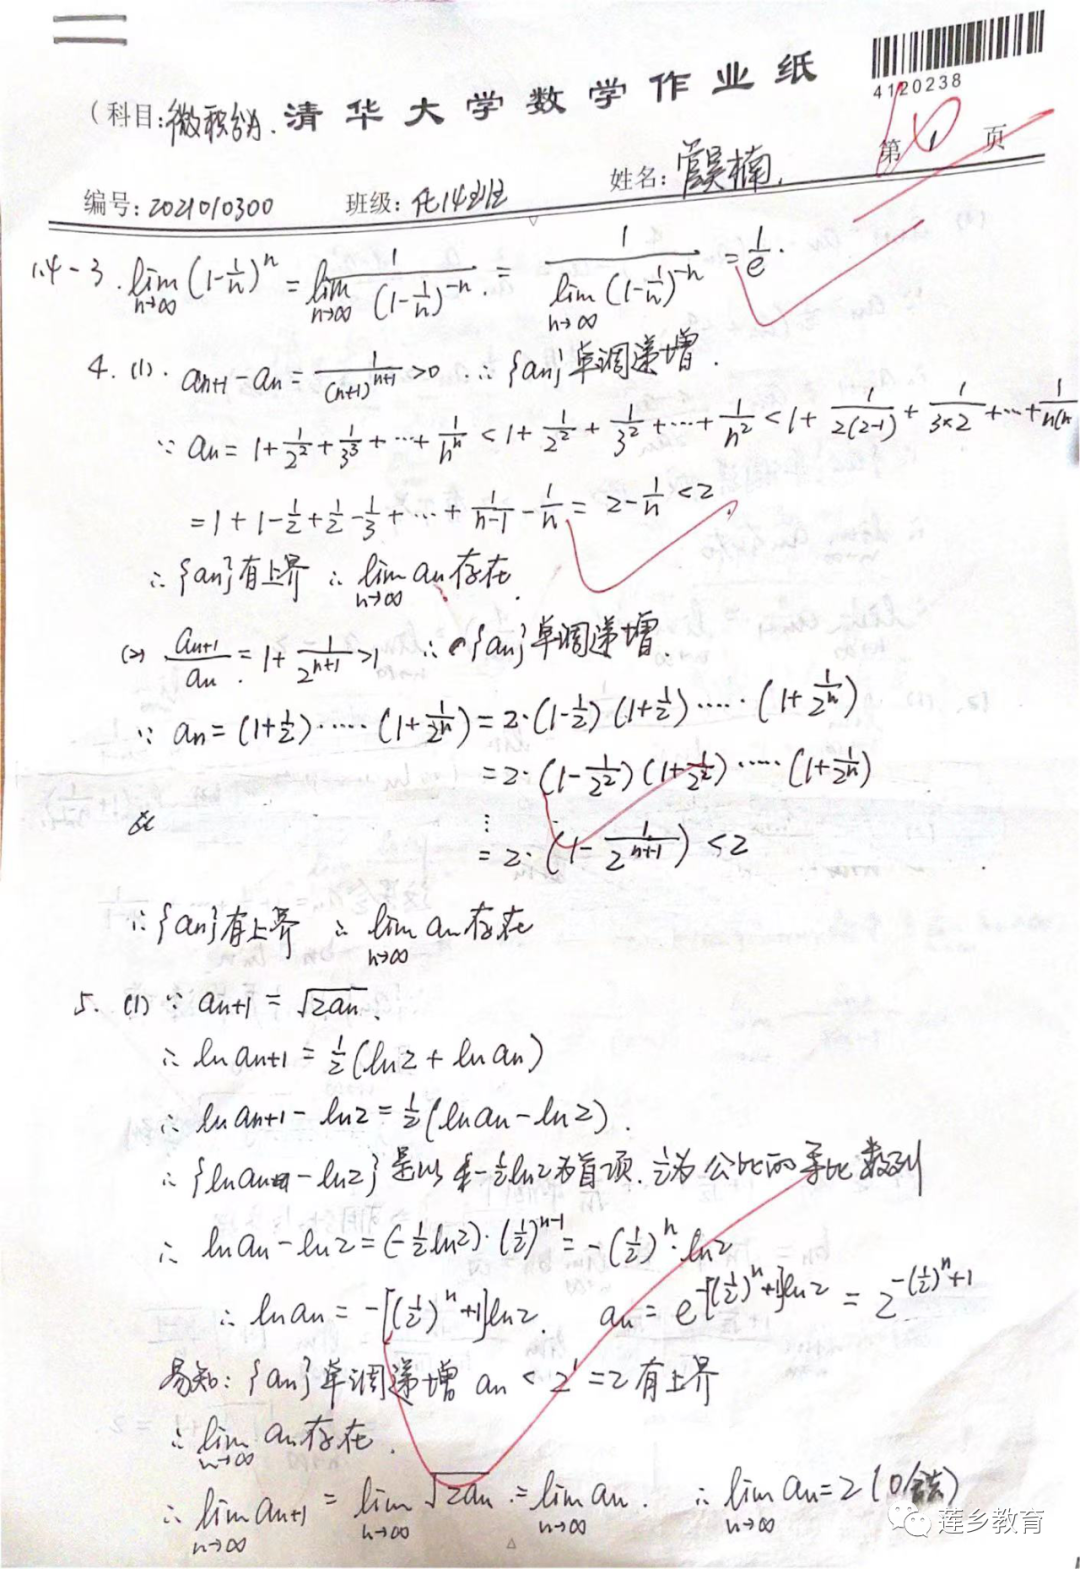 4120238
(科目:微积分. 清华大学数学作业纸
第 1 页
编号:2021010300 班级:化142班 姓名:
1.4-3. lim_{n→∞} (1-1/n)^n = lim_{n→∞} 1/(1-1/n)^{-n} = 1/(lim_{n→∞} (1-1/n)^{-n}) = 1/e.
4. (1). a_{n+1} - a_n = 1/(n+1)^{n+1} > 0 ∴ {a_n}单调递增.
∵ a_n = 1 + 1/2^2 + 1/3^3 + … + 1/n^n < 1 + 1/2^2 + 1/3^2 + … + 1/n^2 < 1 + 1/2(2-1) + 1/3×2 + … + 1/n(n
= 1 + 1 - 1/2 + 1/2 - 1/3 + … + 1/n-1 - 1/n = 2 - 1/n < 2.
∴ {a_n}有上界 ∴ lim_{n→∞} a_n存在.
(2) a_{n+1}/a_n = 1 + 1/2^{n+1} > 1 ∴ {a_n}单调递增.
∵ a_n = (1+1/2)·…··(1+1/2^n) = 2·(1-1/2)(1+1/2)·…··(1+1/2^n)
= 2·(1-1/2^2)(1+1/2^2)·…··(1+1/2^n)
⋮
= 2·(1-1/2^{n+1}) < 2
∴ {a_n}有上界 ∴ lim_{n→∞} a_n存在
5. (1) ∵ a_{n+1} = √2a_n.
∴ ln a_{n+1} = 1/2(ln2 + ln a_n)
∴ ln a_{n+1} - ln2 = 1/2(ln a_n - ln2).
∴ {ln a_n - ln2}是以 -1/2 ln2为首项. 1/2为公比的等比数列
∴ ln a_n - ln2 = (-1/2 ln2)·(1/2)^{n-1} = -(1/2)^n·ln2
∴ ln a_n = -[(1/2)^n+1]ln2. a_n = e^{-[(1/2)^n+1]ln2} = 2^{-(1/2)^n+1}
易知: {a_n}单调递增 a_n < 2^1 = 2有上界
∴ lim_{n→∞} a_n存在.
∴ lim_{n→∞} a_{n+1} = lim_{n→∞} √2a_n = lim_{n→∞} a_n. ∴ lim_{n→∞} a_n = 2 (0舍去)
莲乡教育